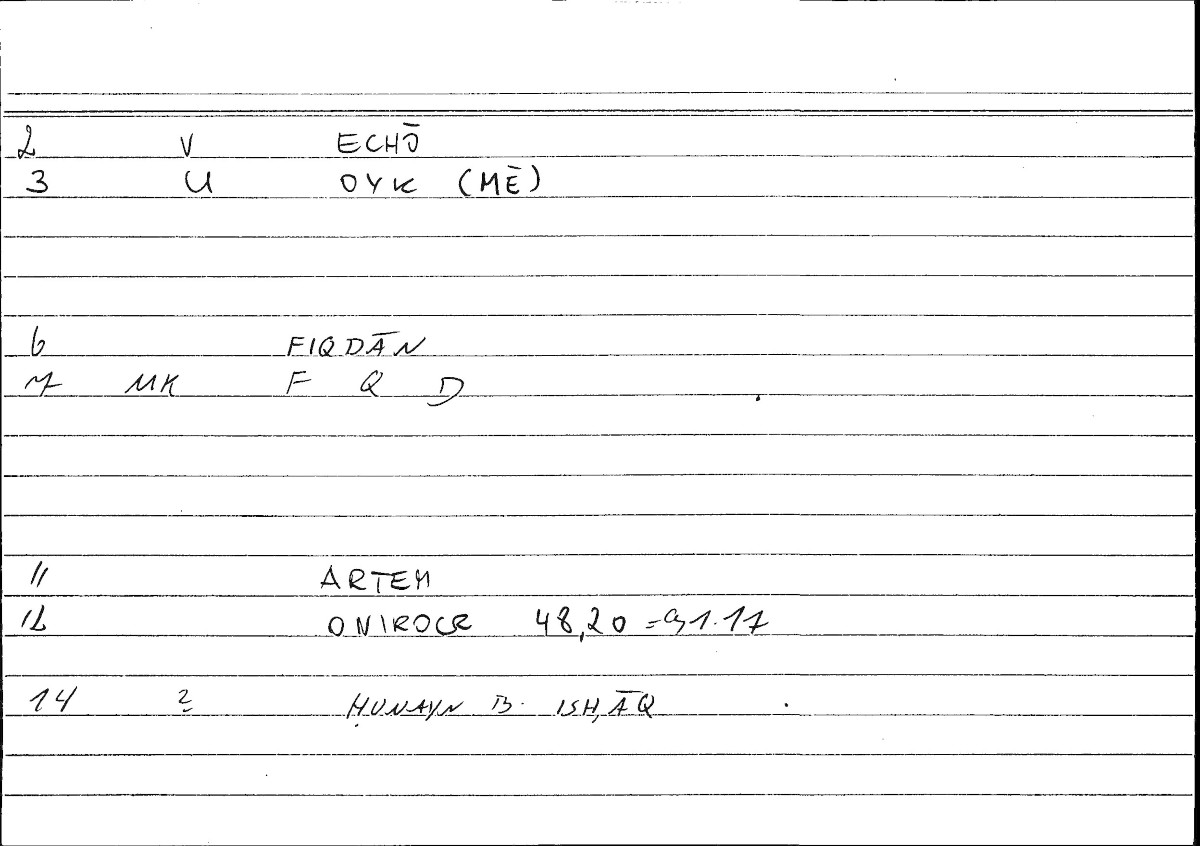 2 V ECHŌ
3 U OYK (MĒ)
6 FIQDĀN
7 MK F Q D
11 ARTEM
12 ONIROCR 48,20 = 91.17
14 2 ḤUNAYN B. ISḤĀQ